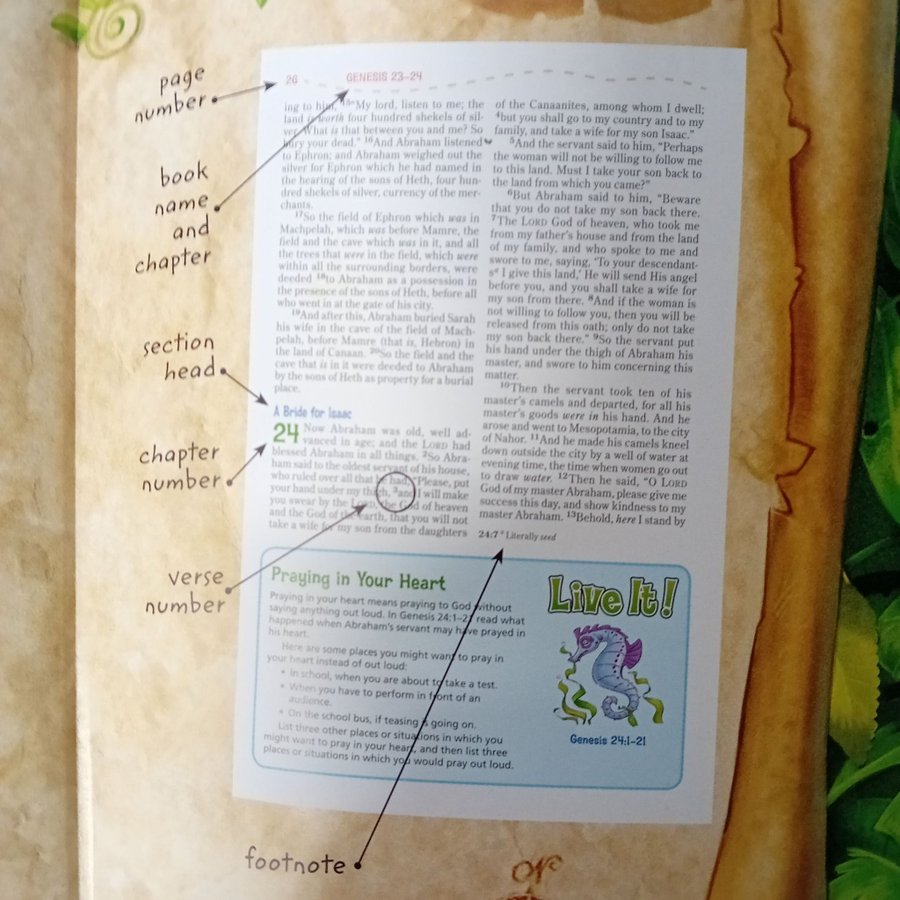 page
number
book
name
and
chapter
section
head
chapter
number
verse
number
footnote
26 GENESIS 23–24
ing to him, 15"My lord, listen to me; the
land is worth four hundred shekels of sil-
ver. What is that between you and me? So
bury your dead." 16And Abraham listened
to Ephron; and Abraham weighed out the
silver for Ephron which he had named in
the hearing of the sons of Heth, four hun-
dred shekels of silver, currency of the mer-
chants.
17So the field of Ephron which was in
Machpelah, which was before Mamre, the
field and the cave which was in it, and all
the trees that were in the field, which were
within all the surrounding borders, were
deeded 18to Abraham as a possession in
the presence of the sons of Heth, before all
who went in at the gate of his city.
19And after this, Abraham buried Sarah
his wife in the cave of the field of Mach-
pelah, before Mamre (that is, Hebron) in
the land of Canaan. 20So the field and the
cave that is in it were deeded to Abraham
by the sons of Heth as property for a burial
place.
A Bride for Isaac
24 Now Abraham was old, well ad-
vanced in age; and the LORD had
blessed Abraham in all things. 2So Abra-
ham said to the oldest servant of his house,
who ruled over all that he had, "Please, put
your hand under my thigh, 3and I will make
you swear by the LORD, the God of heaven
and the God of the earth, that you will not
take a wife for my son from the daughters
of the Canaanites, among whom I dwell;
4but you shall go to my country and to my
family, and take a wife for my son Isaac."
5And the servant said to him, "Perhaps
the woman will not be willing to follow me
to this land. Must I take your son back to
the land from which you came?"
6But Abraham said to him, "Beware
that you do not take my son back there.
7The LORD God of heaven, who took me
from my father's house and from the land
of my family, and who spoke to me and
swore to me, saying, 'To your descendant-
sa I give this land,' He will send His angel
before you, and you shall take a wife for
my son from there. 8And if the woman is
not willing to follow you, then you will be
released from this oath; only do not take
my son back there." 9So the servant put
his hand under the thigh of Abraham his
master, and swore to him concerning this
matter.
10Then the servant took ten of his
master's camels and departed, for all his
master's goods were in his hand. And he
arose and went to Mesopotamia, to the city
of Nahor. 11And he made his camels kneel
down outside the city by a well of water at
evening time, the time when women go out
to draw water. 12Then he said, "O LORD
God of my master Abraham, please give me
success this day, and show kindness to my
master Abraham. 13Behold, here I stand by
24:7 a Literally seed
Praying in Your Heart
Praying in your heart means praying to God without
saying anything out loud. In Genesis 24:1–21 read what
happened when Abraham's servant may have prayed in
his heart.
Here are some places you might want to pray in
your heart instead of out loud:
• In school, when you are about to take a test.
• When you have to perform in front of an
audience.
• On the school bus, if teasing is going on.
List three other places or situations in which you
might want to pray in your heart, and then list three
places or situations in which you would pray out loud.
Live It!
Genesis 24:1–21
or